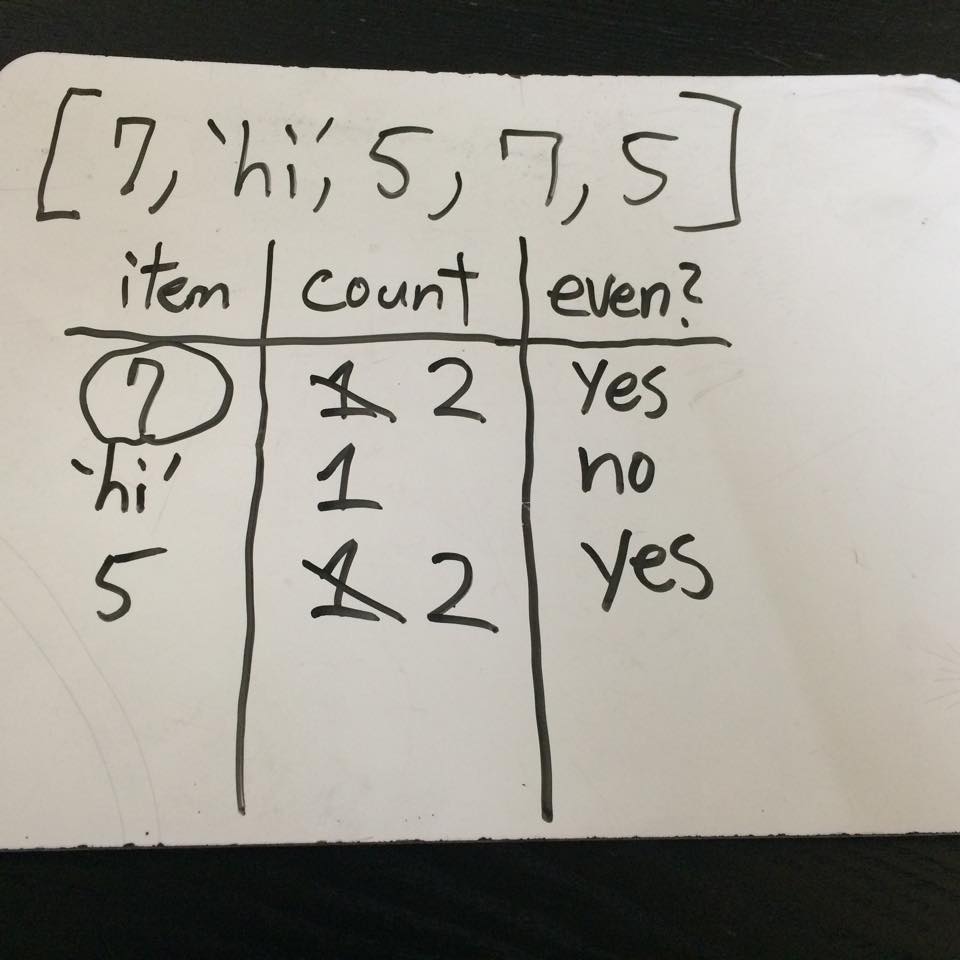 [7, 'hi', 5, 7, 5]
item count even?
7 1 2 yes
'hi' 1 no
5 1 2 yes